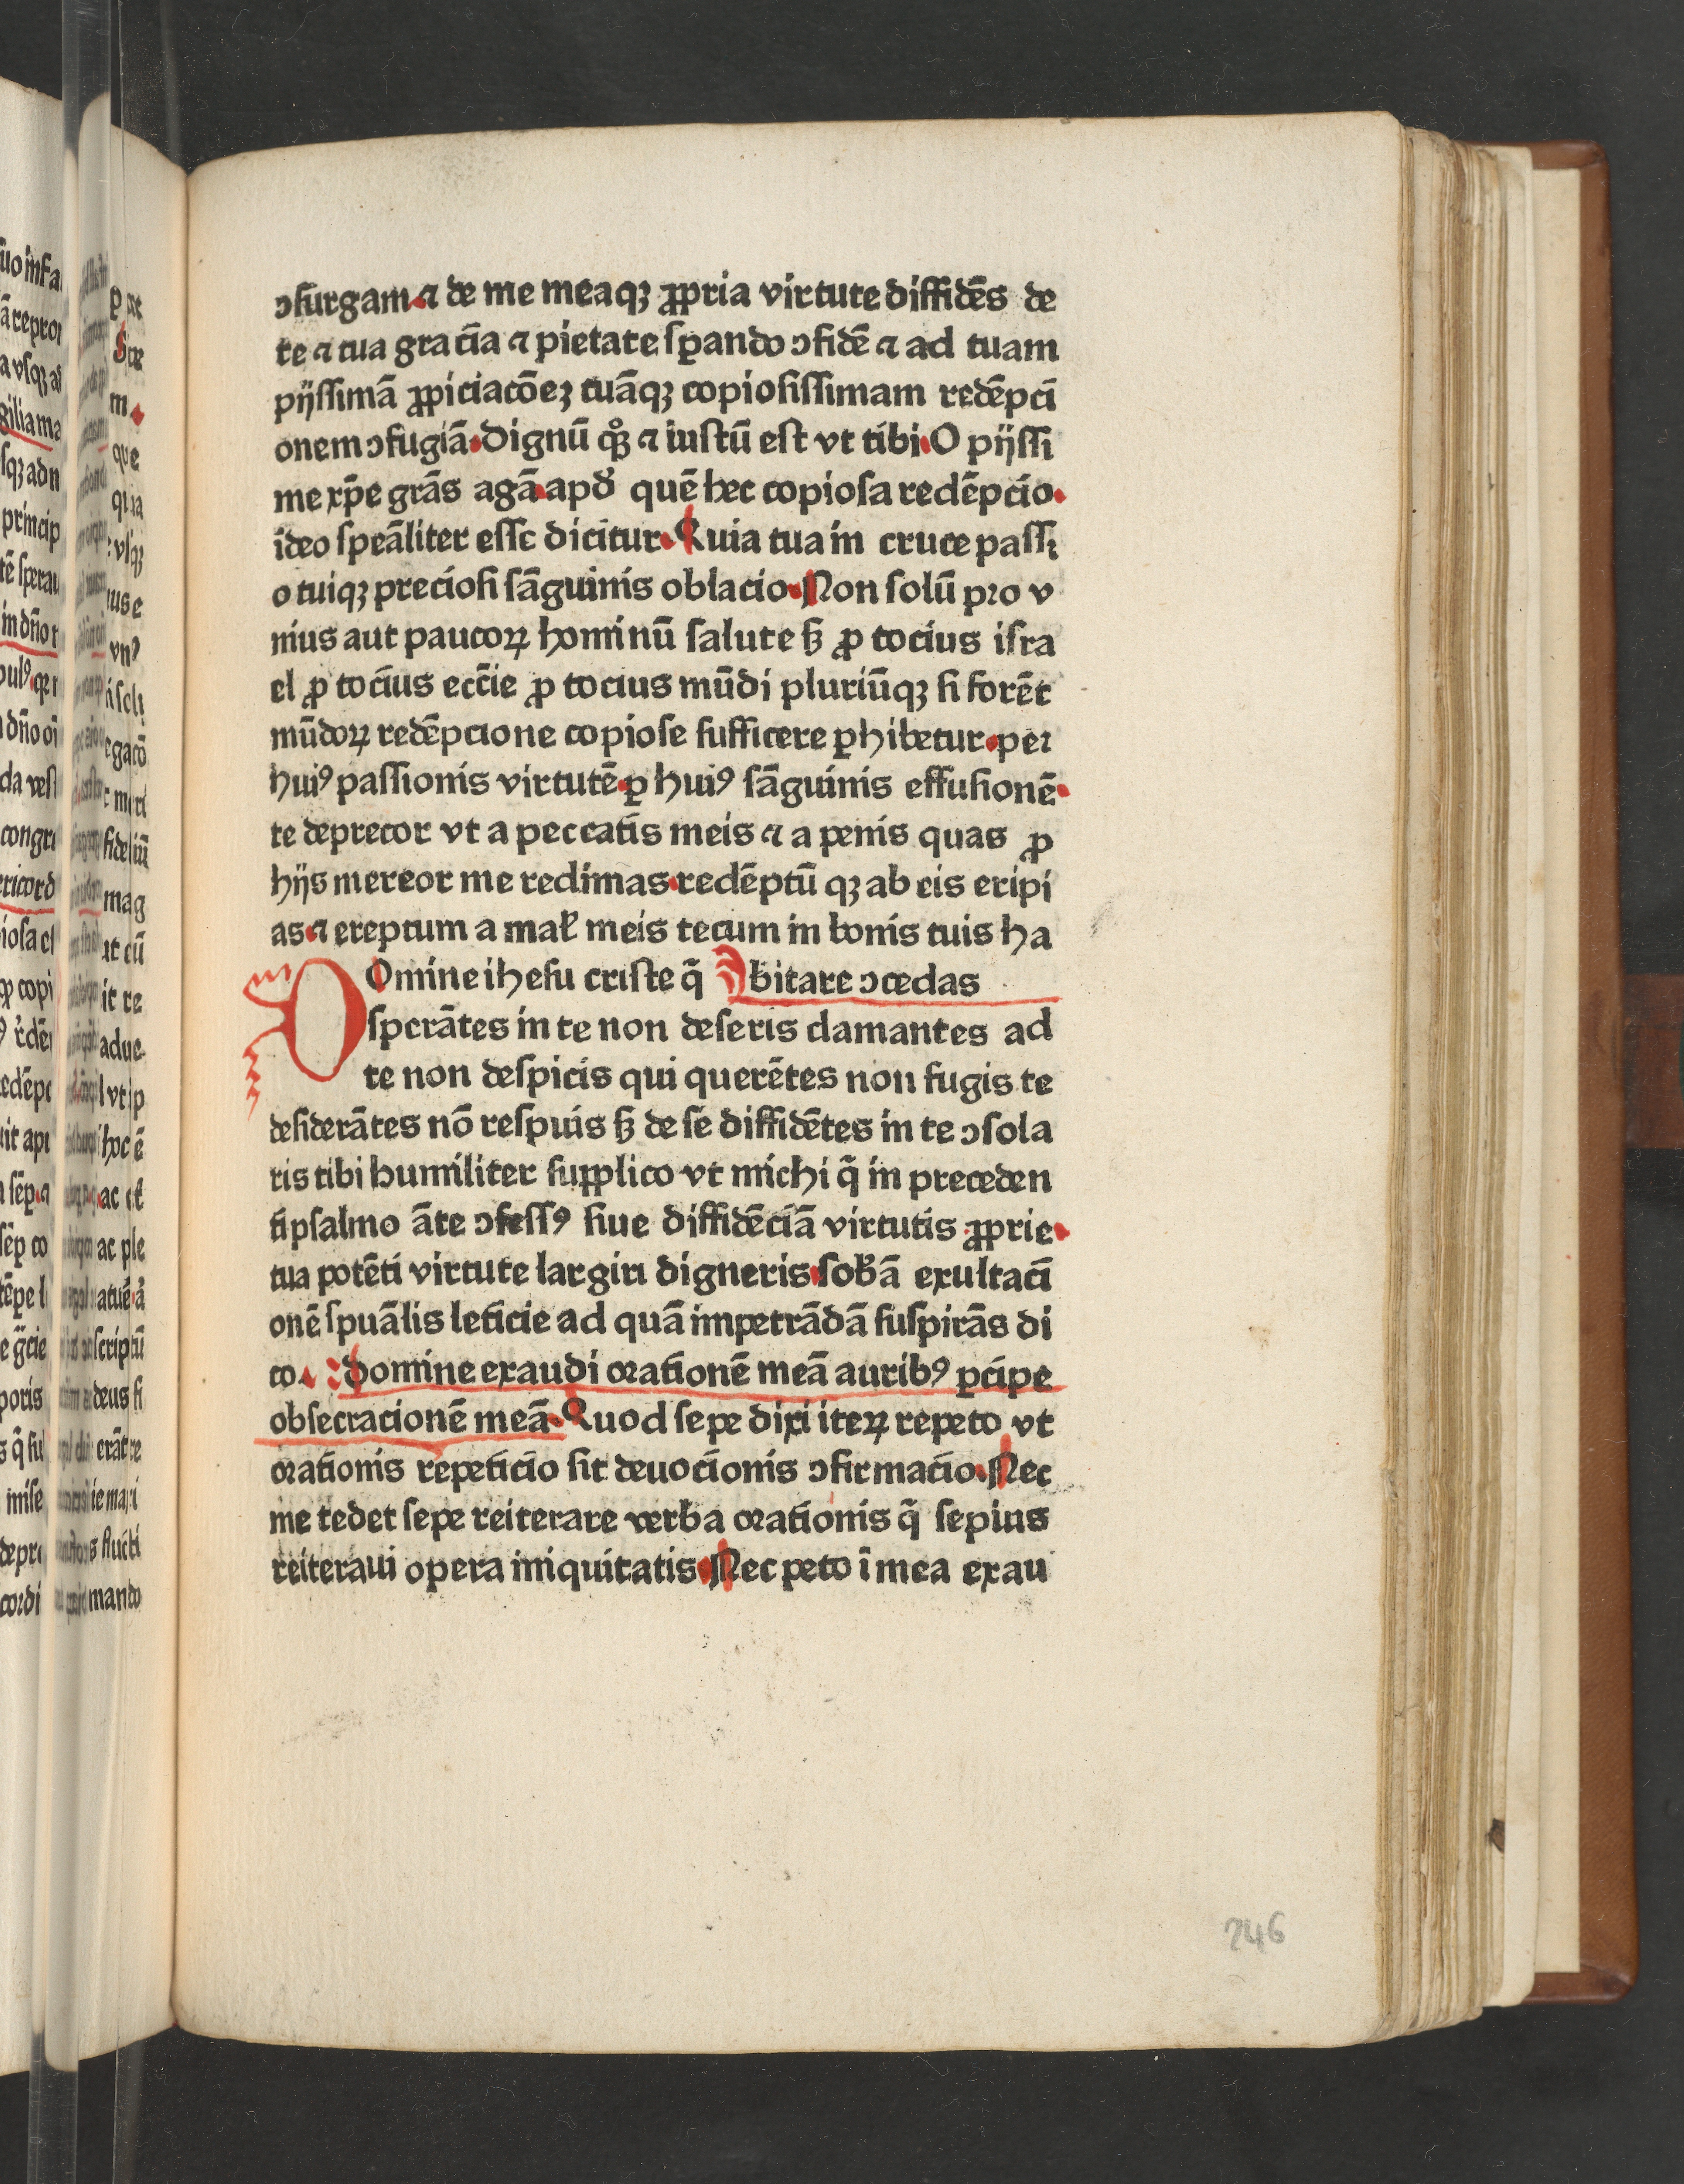 ↄſurgam ⁊ de me meaqꝫ ꝓpria virtute diffidēs de
te ⁊ tua gracīa ⁊ pietate ſꝑando ↄfidē ⁊ ad tuam
pijſſimā ꝓpiciacōeꝫ tuāqꝫ copioſiſſimam redēpci
onem ↄfugiā Dignū qͦꝫ ⁊ iuſtū eſt vt tibi O pijſſi
me xp̄e grās agā apð quē hec copioſa redēpcio
ideo ſpeāliter eſſe dicitur Quia tua in cruce paſſi
o tuiqꝫ precioſi ſāguinis oblacio Non ſolū pro v
nius aut paucoꝝ hominū ſalute ſꝫ ꝓ tocius iſra
el ꝓ tocius ecc̄ie ꝓ tocius mūdi pluriūqꝫ ſi forēt
mūdoꝝ redēpcione copioſe ſufficere ꝑhibetur per
huiꝰ paſſionis virtutē ꝑ huiꝰ ſāguinis effuſionē
te deprecor vt a peccatis meis ⁊ a penis quas ꝓ
hijs mereor me redimas redēptū qꝫ ab eis eripi
as ⁊ ereptum a mal̛ meis tecum in bonis tuis ha
bitare ↄcedas
DOmine iheſu criſte q̄
ſperātes in te non deſeris clamantes ad
te non deſpicis qui querētes non fugis te
deſiderātes nō reſpuis ſꝫ de ſe diffidētes in te ↄſola
ris tibi humiliter ſupplico vt michi q̄ in preceden
ti pſalmo āte ↄfeſſꝰ ſiue diffidēciā virtutis ꝓprie
tua potēti virtute largiri digneris ſob̛ā exultaci
onē ſpuālis leticie ad quā impetrādā ſuſpirās di
co. Domine exaudi orationē meā auribꝰ ꝑcipe
obſecracionē meā Quod ſepe dixi iteꝝ repeto vt
orationis repeticio ſit deuocionis ↄfirmacio Nec
me tedet ſepe reiterare verba orationis q̄ ſepius
reiteraui opera iniquitatis Nec peto ī mea exau
246